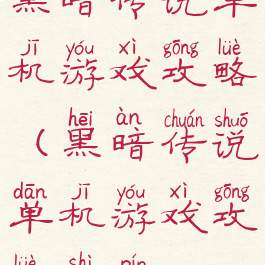 黑暗传说单
jī yóu xì gōng lüè
机游戏攻略
hēi àn chuán shuō
(黑暗传说
dān jī yóu xì gōng
单机游戏攻
lüè shì pín